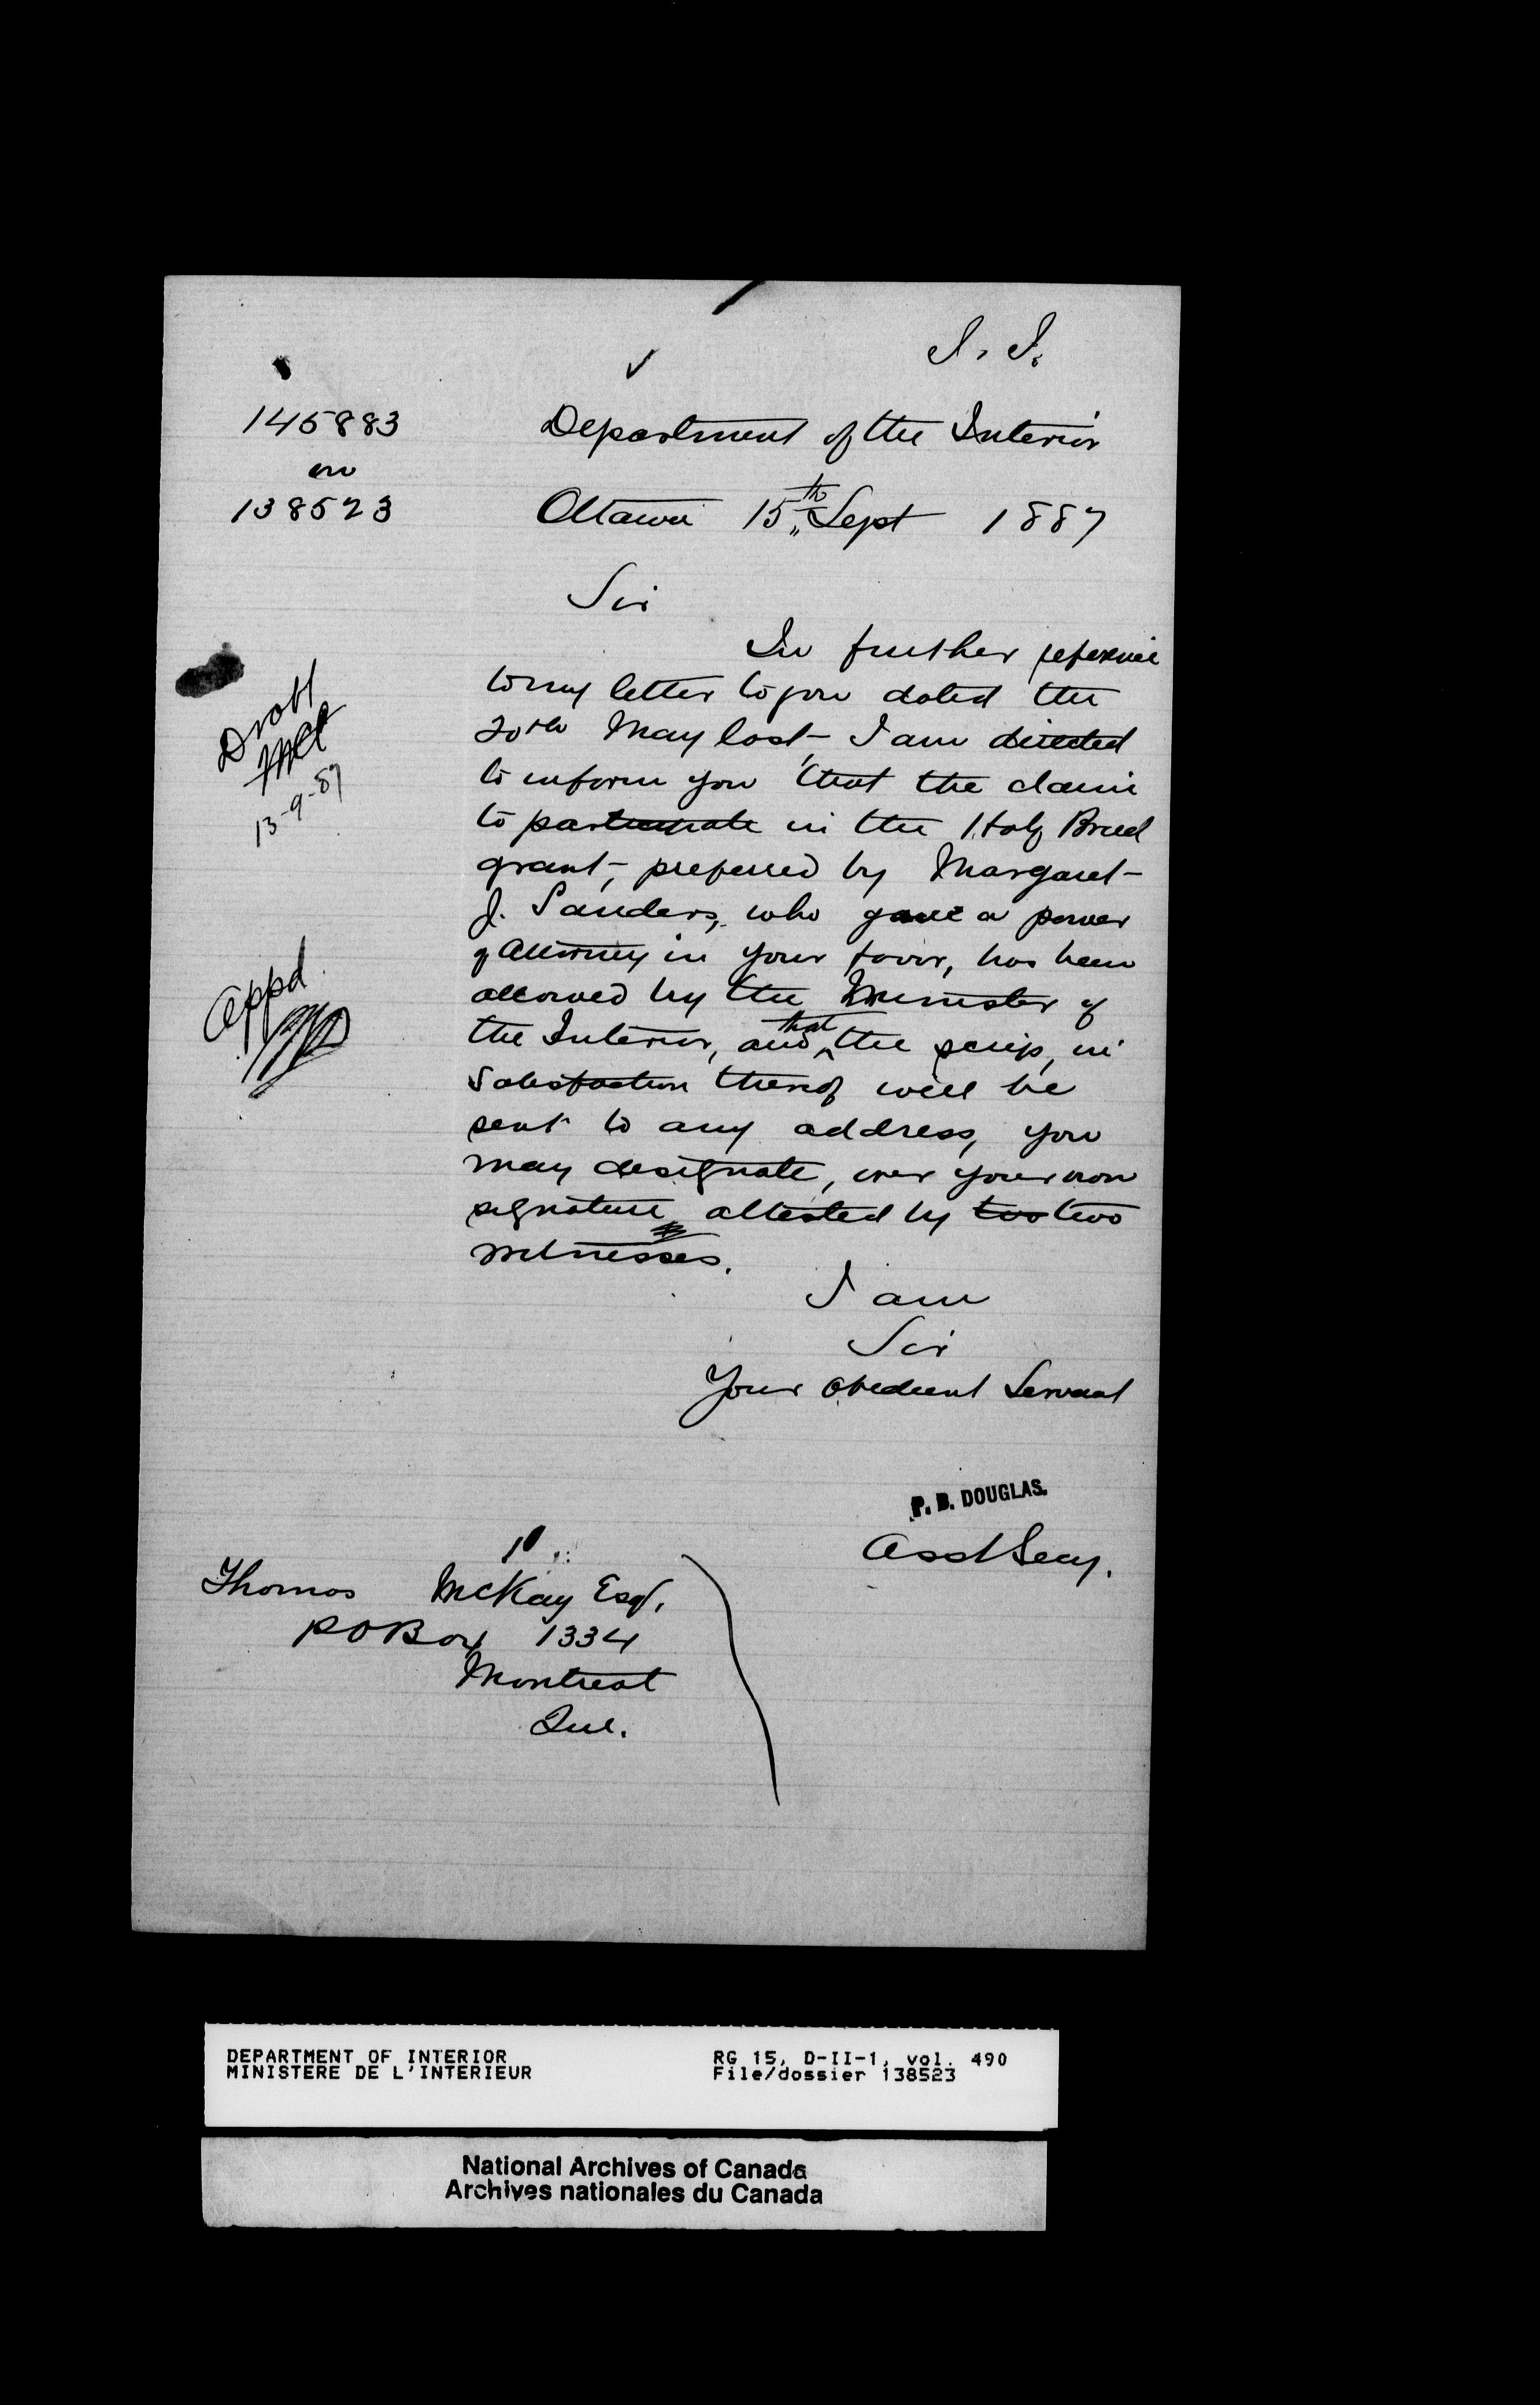 I. I.
145883
on
138523
Department of the Interior
Ottawa 15th Sept 1887
Sir
In further reference
to my letter to you dated the
20th May last, I am directed
to inform you that the claim
to participate in the Half Breed
grant, preferred by Margaret
J. Sanders, who gave a power
of Attorney in your favor, has been
allowed by the Minister of
the Interior, and that the scrip, in
satisfaction thereof will be
sent to any address, you
may designate, over your own
signature attested by two two
witnesses.
I am
Sir
Your obedient Servant
Draft
13-9-87
Appd
P. B. DOUGLAS.
Asst Secy.
Thomas McKay Esq.
P O Box 1334
Montreal
Que.
DEPARTMENT OF INTERIOR
MINISTERE DE L'INTERIEUR
RG 15, D-II-1, vol. 490
File/dossier 138523
National Archives of Canada
Archives nationales du Canada